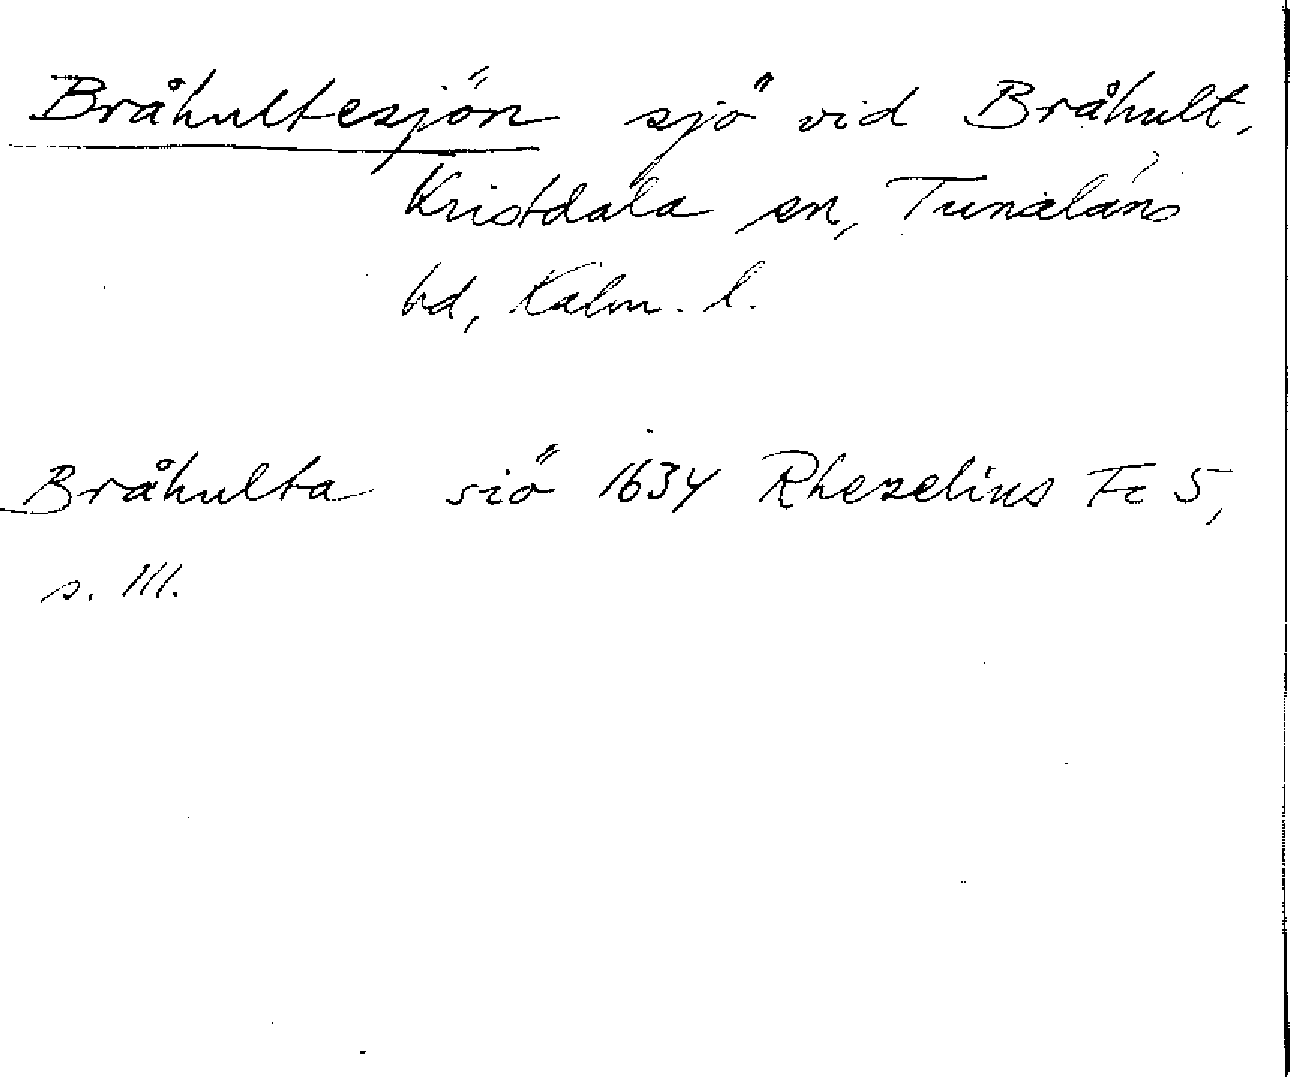 Bråhultesjön sjö vid Bråhult,
Kristdala sn, Tunaläns
hd, Kalm. l.
Bråhulta siö 1634 Rhezelius Fc 5,
s. 111.